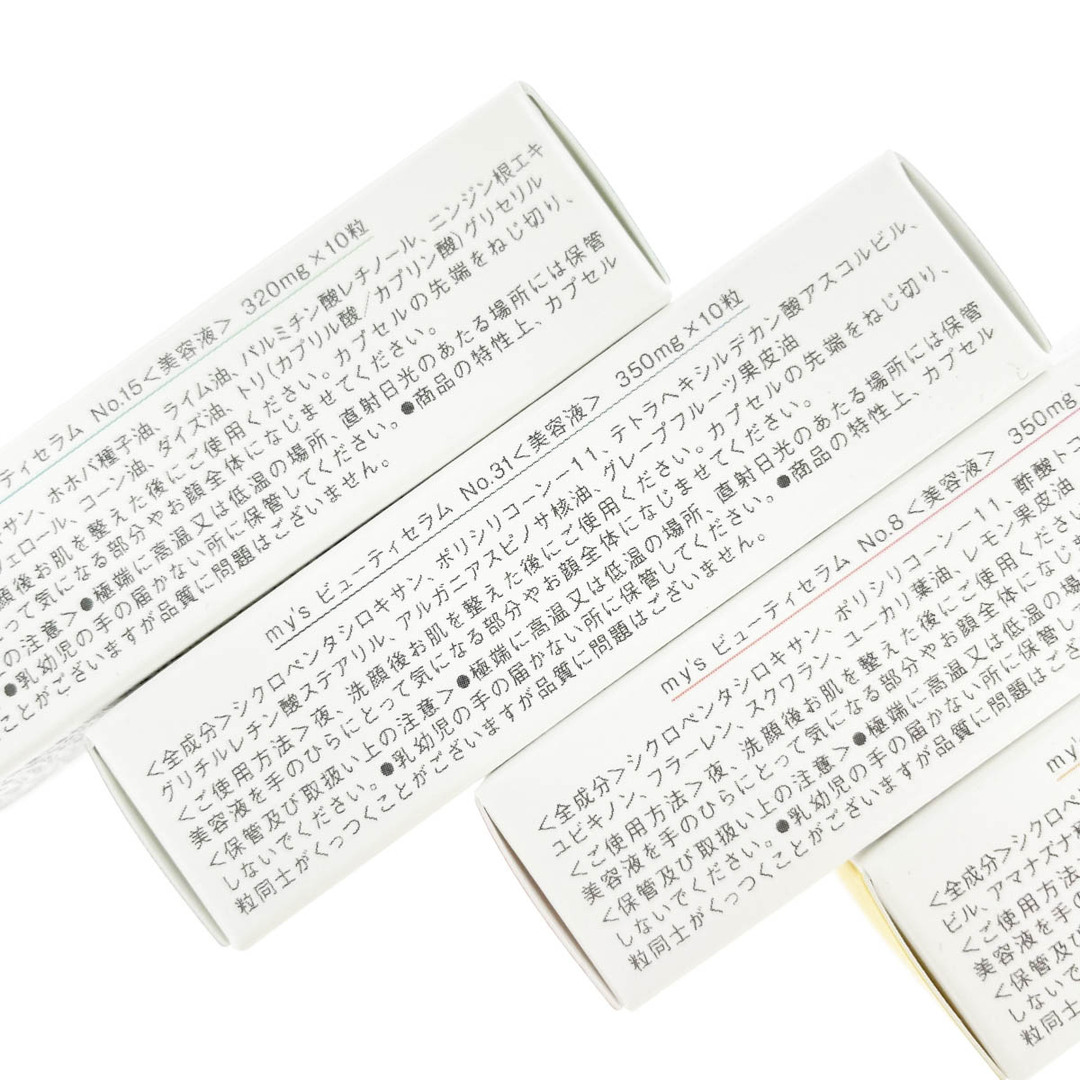 ティセラム No.15<美容液> 320mg×10粒
サン、ホホバ種子油、ライム油、パルミチン酸レチノール、ニンジン根エキ
フェロール、コーン油、ダイズ油、トリ(カプリル酸/カプリン酸)グリセリル
顔後お肌を整えた後にご使用ください。カプセルの先端をねじ切り、
とって気になる部分やお顔全体になじませてください。
の注意>●極端に高温又は低温の場所、直射日光のあたる場所には保管
●乳幼児の手の届かない所に保管してください。●商品の特性上、カプセル
ことがございますが品質に問題はございません。
my's ビューティセラム No.31<美容液> 350mg×10粒
<全成分>シクロペンタシロキサン、ポリシリコーン-11、テトラヘキシルデカン酸アスコルビル、
グリチルレチン酸ステアリル、アルガニアスピノサ核油、グレープフルーツ果皮油
<ご使用方法>夜、洗顔後お肌を整えた後にご使用ください。カプセルの先端をねじ切り、
美容液を手のひらにとって気になる部分やお顔全体になじませてください。
<保管及び取扱い上の注意>●極端に高温又は低温の場所、直射日光のあたる場所には保管
しないでください。●乳幼児の手の届かない所に保管してください。●商品の特性上、カプセル
粒同士がくっつくことがございますが品質に問題はございません。
my's ビューティセラム No.8<美容液> 350mg
<全成分>シクロペンタシロキサン、ポリシリコーン-11、酢酸ト
ユビキノン、フラーレン、スクワラン、ユーカリ葉油、レモン果皮油
<ご使用方法>夜、洗顔後お肌を整えた後にご使用くださ
美容液を手のひらにとって気になる部分やお顔全体になじ
<保管及び取扱い上の注意>●極端に高温又は低温の場
しないでください。●乳幼児の手の届かない所に保管し
粒同士がくっつくことがございますが品質に問題は
my
<全成分>シクロペ
ビル、アマナズナ
<ご使用方法
美容液を手の
<保管及び
しないで
粒同士